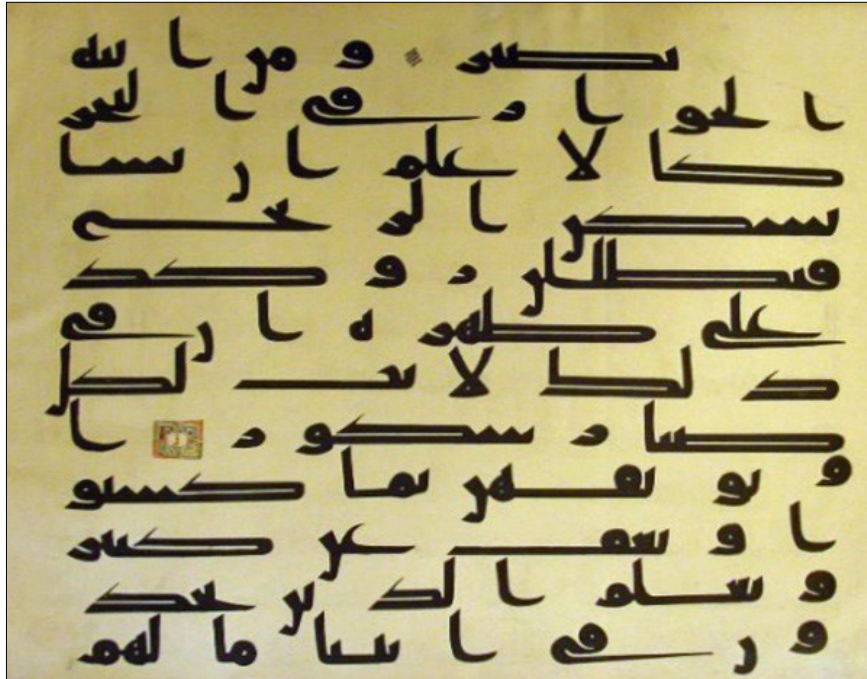 نصير ومن ايته
الجوار في البحر
كالاعلم ان يشا
يسكن الريح
فيظللن رواكد
على ظهره ان في
ذلك لايت لكل
صبار شكور ا
و يوبقهن بما كسبو
ا ويعف عن كثير
ويعلم الذين يجدل
ون في ايتنا ما لهم